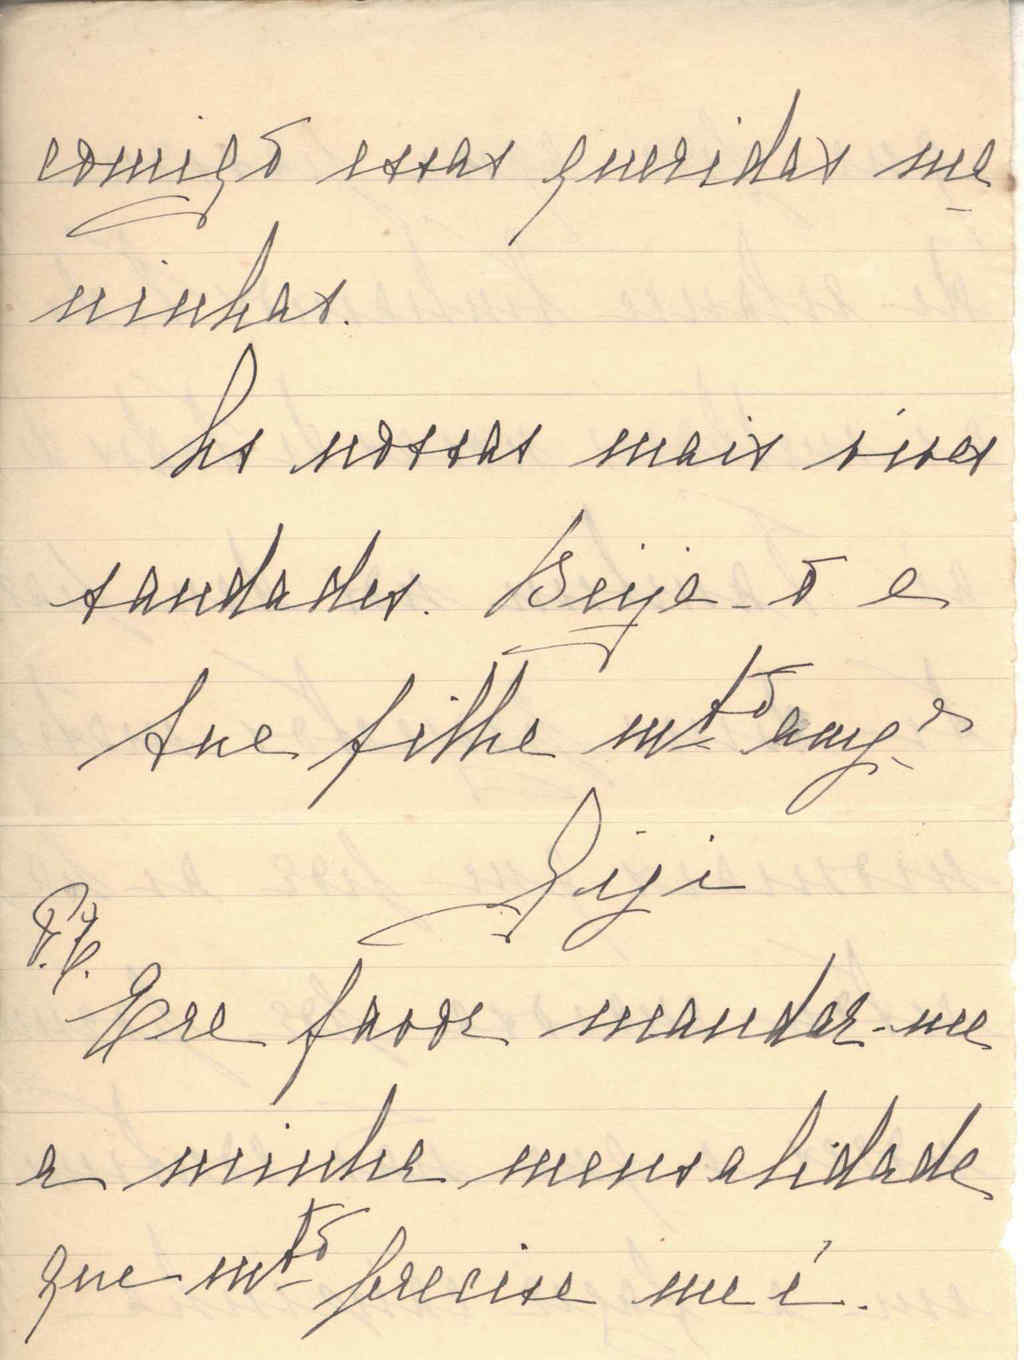 comigo essas queridas me
ninhas.
As nossas mais vivas
saudades. Beija-o a
sua filha mtº amgª
Gigi
P.S.
Era favor mandar-me
a minha mensalidade
que mtº precisa me é.